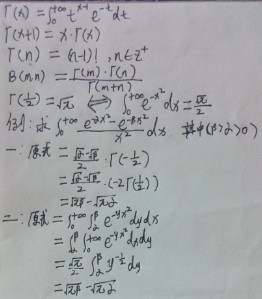 Γ(x) = ∫₀^{+∞} t^{x-1} e^{-t} dt
Γ(x+1) = x·Γ(x)
Γ(n) = (n-1)! , n∈Z⁺
B(m,n) = Γ(m)·Γ(n) / Γ(m+n)
Γ(1/2) = √π ⟺ ∫₀^{+∞} e^{-x²} dx = √π/2
例: 求 ∫₀^{+∞} (e^{-αx²} - e^{-βx²})/x² dx 其中(β>α>0)
一: 原式 = (√α-√β)/2 · Γ(-1/2)
= (√α-√β)/2 · (-2Γ(1/2))
= √πβ - √πα
二: 原式 = ∫₀^{+∞} ∫_α^β e^{-yx²} dy dx
= ∫_α^β ∫₀^{+∞} e^{-yx²} dx dy
= √π/2 ∫_α^β y^{-1/2} dy
= √πβ - √πα